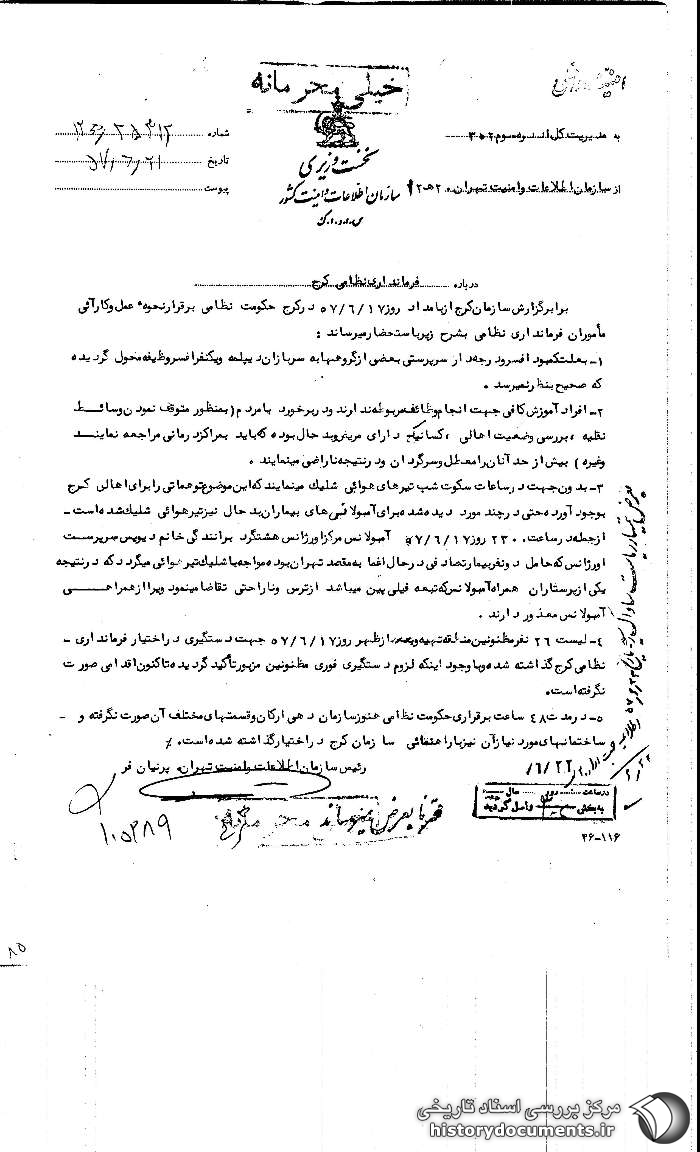 خیلی محرمانه
به مدیریت کل اداره سوم ۳۰۲
شماره
تاریخ ۵۷/۶/۲۱
پیوست
نخست وزیری
سازمان اطلاعات و امنیت کشور
س.ا.و.ا.ک
از سازمان اطلاعات و امنیت تهران
درباره فرمانداری نظامی کرج
برابر گزارش سازمان کرج از بامداد روز ۵۷/۶/۱۷ در کرج حکومت نظامی برقرار نحوه عمل و کارآئی
مأموران فرمانداری نظامی بشرح زیر باستحضار میرساند :
۱- بعلت کمبود افسر و درجه دار سرپرستی بعضی از گروهها به سربازان دیپلمه و یکنفر افسر وظیفه محول گردیده
که صحیح بنظر نمیرسد .
۲- افراد آموزش کافی جهت انجام وظائف مربوطه ندارند و در برخورد با مردم ( بمنظور متوقف نمودن وسائط
نقلیه ، بررسی وضعیت اهالی ، کسانیکه دارای مریض بد حال بوده که باید بمراکز درمانی مراجعه نمایند
وغیره ) بیش از حد آنان را معطل و سرگردان و در نتیجه ناراضی مینمایند .
۳- بدون جهت در ساعات سکوت شب تیرهای هوائی شلیک مینمایند که این موضوع توهماتی را برای اهالی کرج
بوجود آورده حتی در چند مورد دیده شده برای آمبولانس های بیماران بد حال نیز تیر هوائی شلیک شده است -
از جمله در ساعت ۲۳۰ روز ۵۷/۶/۱۷ آمبولانس مرکز اورژانس هشتگرد برانندگی خانم دیویس سرپرست
اورژانس که حامل دو نفر بیمار تصادفی در حال اغما به مقصد تهران بوده مواجه با شلیک تیر هوائی میگردد که در نتیجه
یکی از پرستاران همراه آمبولانس که تبعه فیلی پین میباشد از ترس و ناراحتی تقاضا مینمود ویرا از همراهی
آمبولانس معذور دارند .
۴- لیست ۲۶ نفر مظنونین منطقه تهیه و بعد از ظهر روز ۵۷/۶/۱۷ جهت دستگیری در اختیار فرمانداری -
نظامی کرج گذاشته شده و با وجود اینکه لزوم دستگیری فوری مظنونین مزبور تأکید گردیده تاکنون اقدامی صورت
نگرفته است.
۵- در مدت ۴۸ ساعت برقراری حکومت نظامی هنوز سازمان دهی ارکان و قسمتهای مختلف آن صورت نگرفته و -
ساختمانهای مورد نیاز آن نیز با راهنمائی سازمان کرج در اختیار گذاشته شده است. ٪
رئیس سازمان اطلاعات و امنیت تهران. پرنیان فر
۶/۲۲/
محرمانه
۱۰۵۳۸۹
۳۶-۱۱۶
۸۵
مرکز بررسی اسناد تاریخی
historydocuments.ir